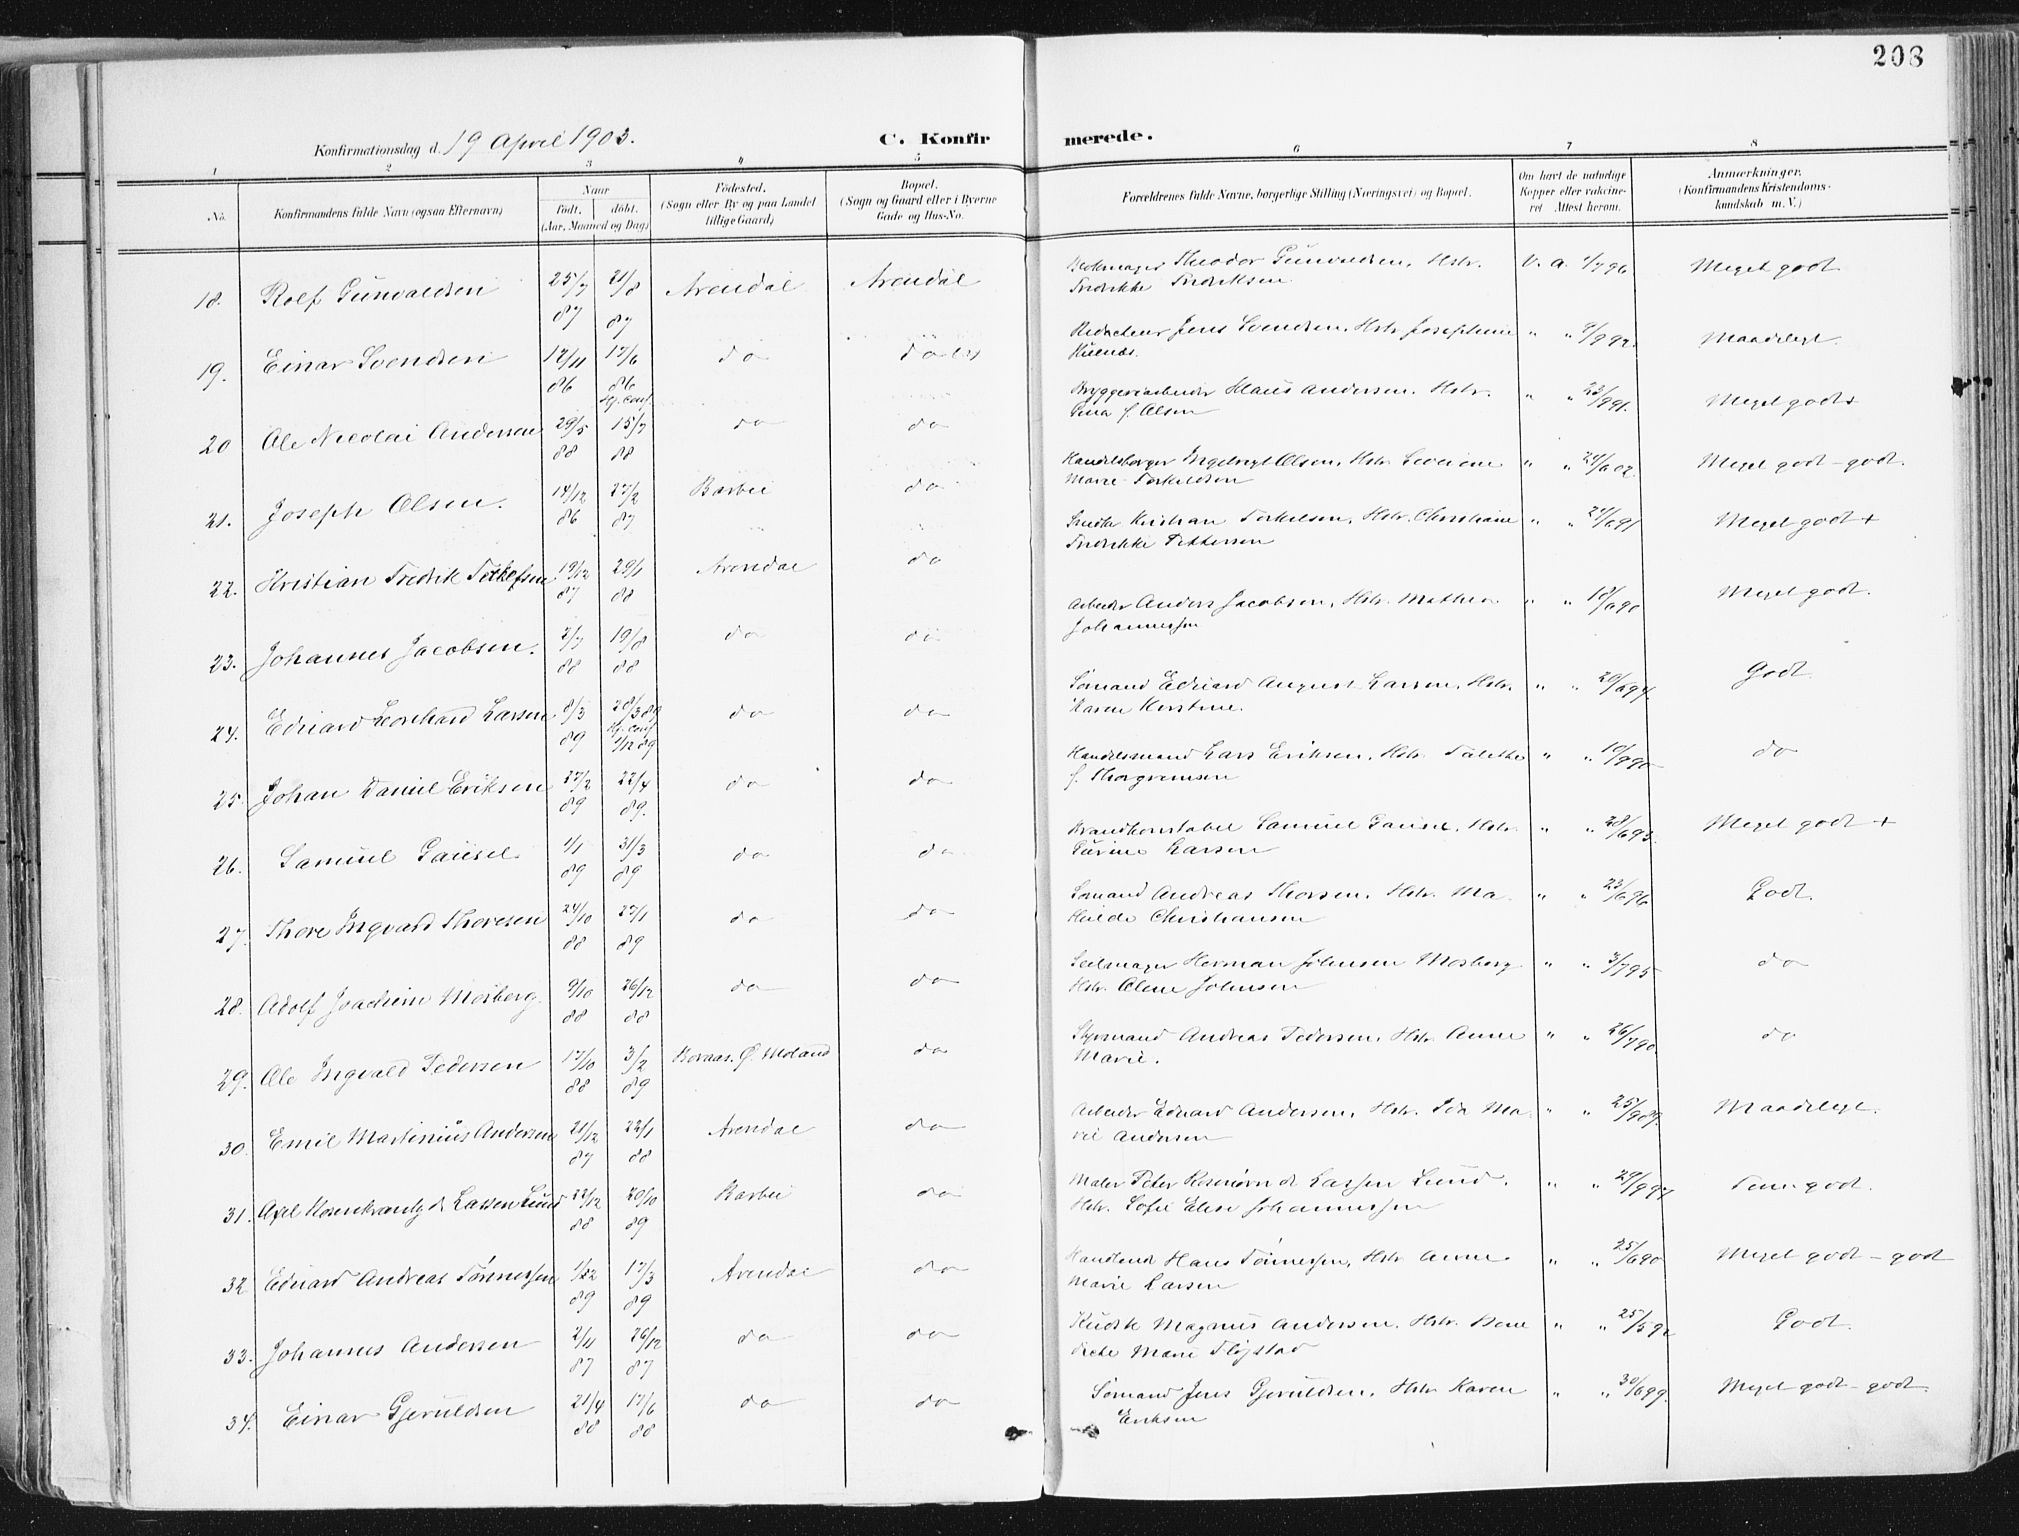 208
Konfirmationsdag d. 19 April 1903.
C. Konfirmerede.
1 2 3 4 5 6 7 8
No.
Konfirmandens fulde Navn (ogsaa Efternavn)
Naar
født, døbt.
(Aar, Maaned og Dag)
Fødested.
(Sogn eller By og paa Landet
tillige Gaard)
Bopæl.
(Sogn og Gaard eller i Byerne
Gade og Hus-No.
Forældrenes fulde Navne, borgerlige Stilling (Næringsvei) og Bopæl.
Om havt de naturlige
Kopper eller vaccine-
ret Attest herom.
Anmærkninger.
(Konfirmandens Kristendoms-
kundskab m. V.)
18. Rolf Gunvaldsen 25/7 87 21/8 87 Arendal Arendal Theodor Gunvaldsen, Hstr. V. a. 1/7 96 Meget godt
Fredrikke Fredriksen
19. Einar Svendsen 12/11 86 17/6 86 do Redacteur Jens Svendsen, Hstr Josephine " " 9/9 92. Maadeligt.
20 Ole Nicolai Andersen 29/5 88 15/7 88 do do Bryggeriarbeider Klaus Andersen, Hstr. " " 23/9 91. Meget godt +
f. Olsen
21. Joseph Olsen. 14/12 86 27/2 87 Barbu do Handelsborger Ingebregt Olsen, Hstr Severine " " 24/6 02. Meget godt - godt.
Marie Torkildsen
22. Kristian Fredrik Torkelsen 19/12 87 29/1 88 Arendal do Kristian Torkelsen, Hstr. Christiane " " 24/6 91 Meget godt +
Fredrikke Pettersen
23. Johannes Jacobsen. 2/7 88 19/8 88 do do Arbeider Anders Jacobsen, Hstr. Mathea " " 18/6 90 Meget godt.
Johannessen
24. Edvard Leonhard Larsen 8/3 89 28/3 89 do do Sømand Edvard August Larsen, Hstr. " " 20/6 94. Godt
Karen Kirstine.
25. Johan Daniel Eriksen 27/2 89 22/4 89. do do Handelsmand Lars Eriksen, Hstr. Talette " " 10/9 90 do
f. Thorgrimsen
26. Samuel Gausel. 1/1 89 31/3 89 do do Brandkonstabel Samuel Gausel, Hstr. " " 28/6 93. Meget godt +
Gurine Larsen
27. Thore Ingvald Thoresen 24/10 88 27/1 89 do do Sømand Andreas Thorsen, Hstr. Ma- " " 23/6 96 Godt.
thilde Christiansen
28. Adolf Joachim Mosberg. 9/10 88 26/12 88 do do Seilmager Herman Johnsen Mosberg " " 3/7 95 do
Hstr. Olene Johnsen
29. Ole Ingvald Pedersen 17/10 88 3/2 89 Boraas. Ø. Moland do Styrmand Andreas Pedersen, Hstr Anne " " 26/7 90. do
Marie.
30. Emil Martinius Andersen 21/12 87 22/1 88 Arendal do Arbeider Edvard Andersen, Hstr. Ida Ma- " " 25/9 89. Maadeligt.
rie Andersen
31. Axel Rosenkrantz d. Lassen Lund 22/12 88 20/10 89 Barbu do Maler Peter Rosenørn d. Lassen Lund, " " 29/9 97 Temel godt.
Hstr. Sofie Elise Johannessen
32 Edvard Andreas Tønnessen 1/2 89 17/3 89 Arendal do Handlende Hans Tønnessen, Hstr Anne " " 25/6 90 Meget godt - godt
Marie Larsen
33. Johannes Andersen 2/11 87 26/12 87 do do Kudsk Magnus Andersen, Hstr. Bene " " 25/5 92 Godt.
dicte Marie Fløjstad
34. Einar Gjeruldsen 21/4 88 17/6 88 do do Sømand Jens Gjeruldsen, Hstr Karen " " 30/6 99. Meget godt - godt.
Eriksen